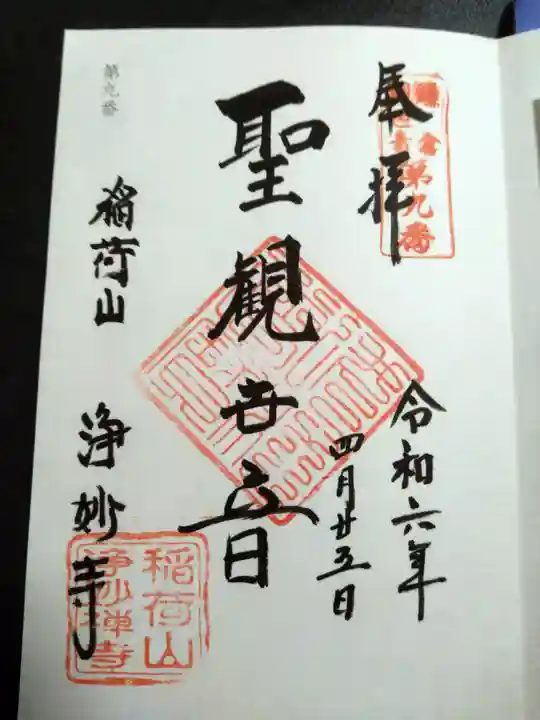 奉拝
鎌倉
第九番
令和六年
四月廿五日
聖観世音
稲荷山 浄妙寺
稲荷山
浄妙禅寺
第九番